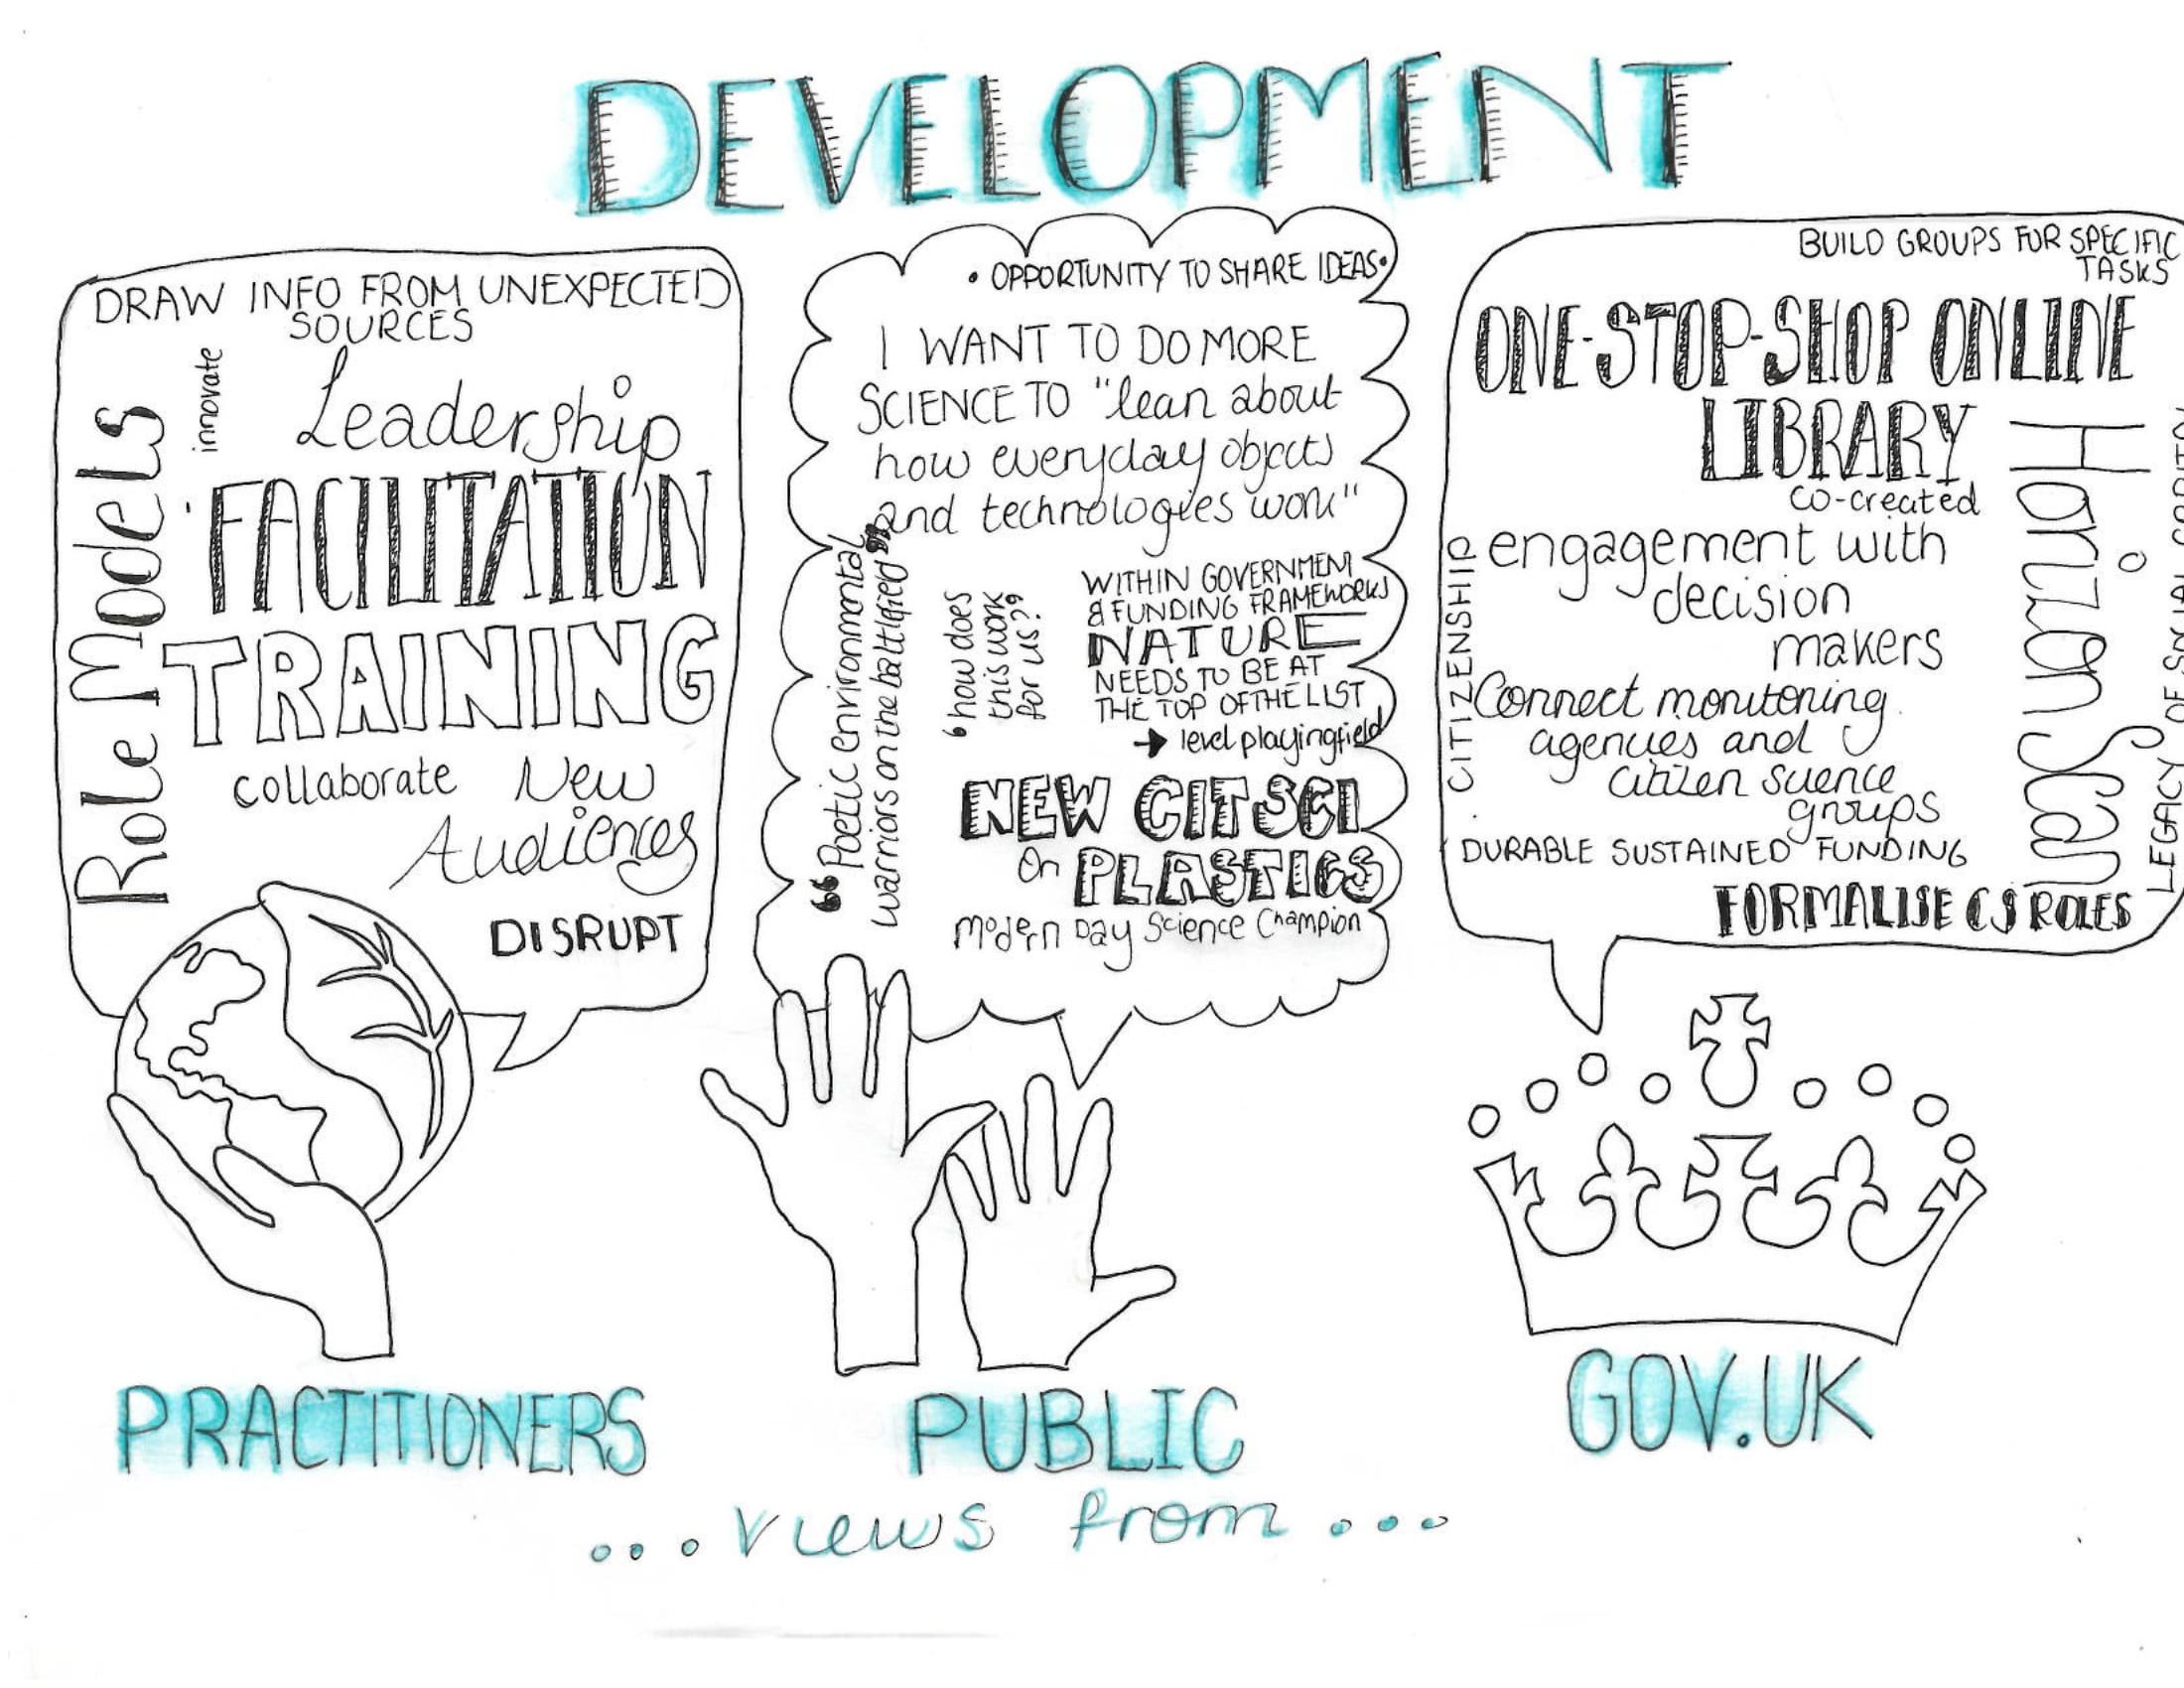 DEVELOPMENT
DRAW INFO FROM UNEXPECTED
SOURCES
innovate
Role Models
Leadership
FACILITATION
TRAINING
collaborate New
Audiences
DISRUPT
• OPPORTUNITY TO SHARE IDEAS•
I WANT TO DO MORE
SCIENCE TO "lean about
how everyday objects
and technologies work"
"Poetic environmental
warriors on the battlefield"
'how does
this work
for us??
WITHIN GOVERNMENT
& FUNDING FRAMEWORKS
NATURE
NEEDS TO BE AT
THE TOP OF THE LIST
→ level playingfield
NEW CITSCI
on PLASTICS
Modern Day Science Champion
BUILD GROUPS FOR SPECIFIC
TASKS
ONE-STOP-SHOP ONLINE
LIBRARY
co-created
engagement with
decision
makers
CITIZENSHIP
Connect monitoring
agencies and
citizen science
groups
DURABLE SUSTAINED FUNDING
FORMALISE CS ROLES
Horizon Scan
LEGACY OF SOCIAL CAPITAL
PRACTITIONERS
PUBLIC
GOV.UK
...views from...